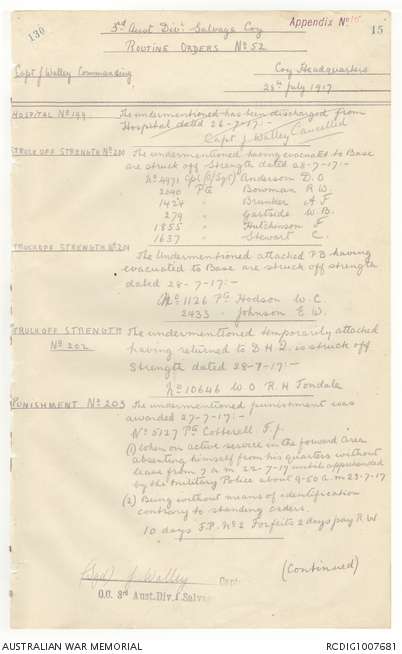 Appendix No 15.
130
15
3rd Aust Divl Salvage Coy
ROUTINE ORDERS No 52
Capt J Walley Commanding
Coy Headquarters
28th July 1917
HOSPITAL No 199
The undermentioned has been discharged from
Hospital dated 26-7-17:-
Capt J Walley Cancelled
STRUCK OFF STRENGTH No 200
The undermentioned having evacuated to Base
are struck off Strength dated 28-7-17:-
No 4971 Cpl (T/Sgt) Anderson D.O
2090 Pte Bowman R.W.
1424 " Brunker A F
279 " Gartside W.B.
1855 " Hutchinson F
1637 " Stewart C.
STRUCK OFF STRENGTH No 201
The Undermentioned attached P.B. having
evacuated to Base are struck off strength
dated 28-7-17:-
No 1126 Pte Hodson W.C.
2433 " Johnson E.W.
STRUCK OFF STRENGTH
No 202
The undermentioned temporarily attached
having returned to D.H.Q. is struck off
Strength dated 28-7-17:-
No 10646 W.O R.H Tondale
PUNISHMENT No 203
The undermentioned punishment was
awarded 27-7-17:-
No 5127 Pte Cotterell F.J.
(1) When on active service in the foward area
absenting himself from his quarters without
leave from 7 a.m 22-7-17 until apprehended
by the Military Police about 9-50 a.m 23-7-17
(2) Being without means of identification
contrary to standing orders.
10 days F.P. No 2 Forfeits 2 days pay R.W
(Continued)
(Sgd) J Walley Capt
O.C. 3rd Aust. Div. Salvage
AUSTRALIAN WAR MEMORIAL
RCDIG1007681